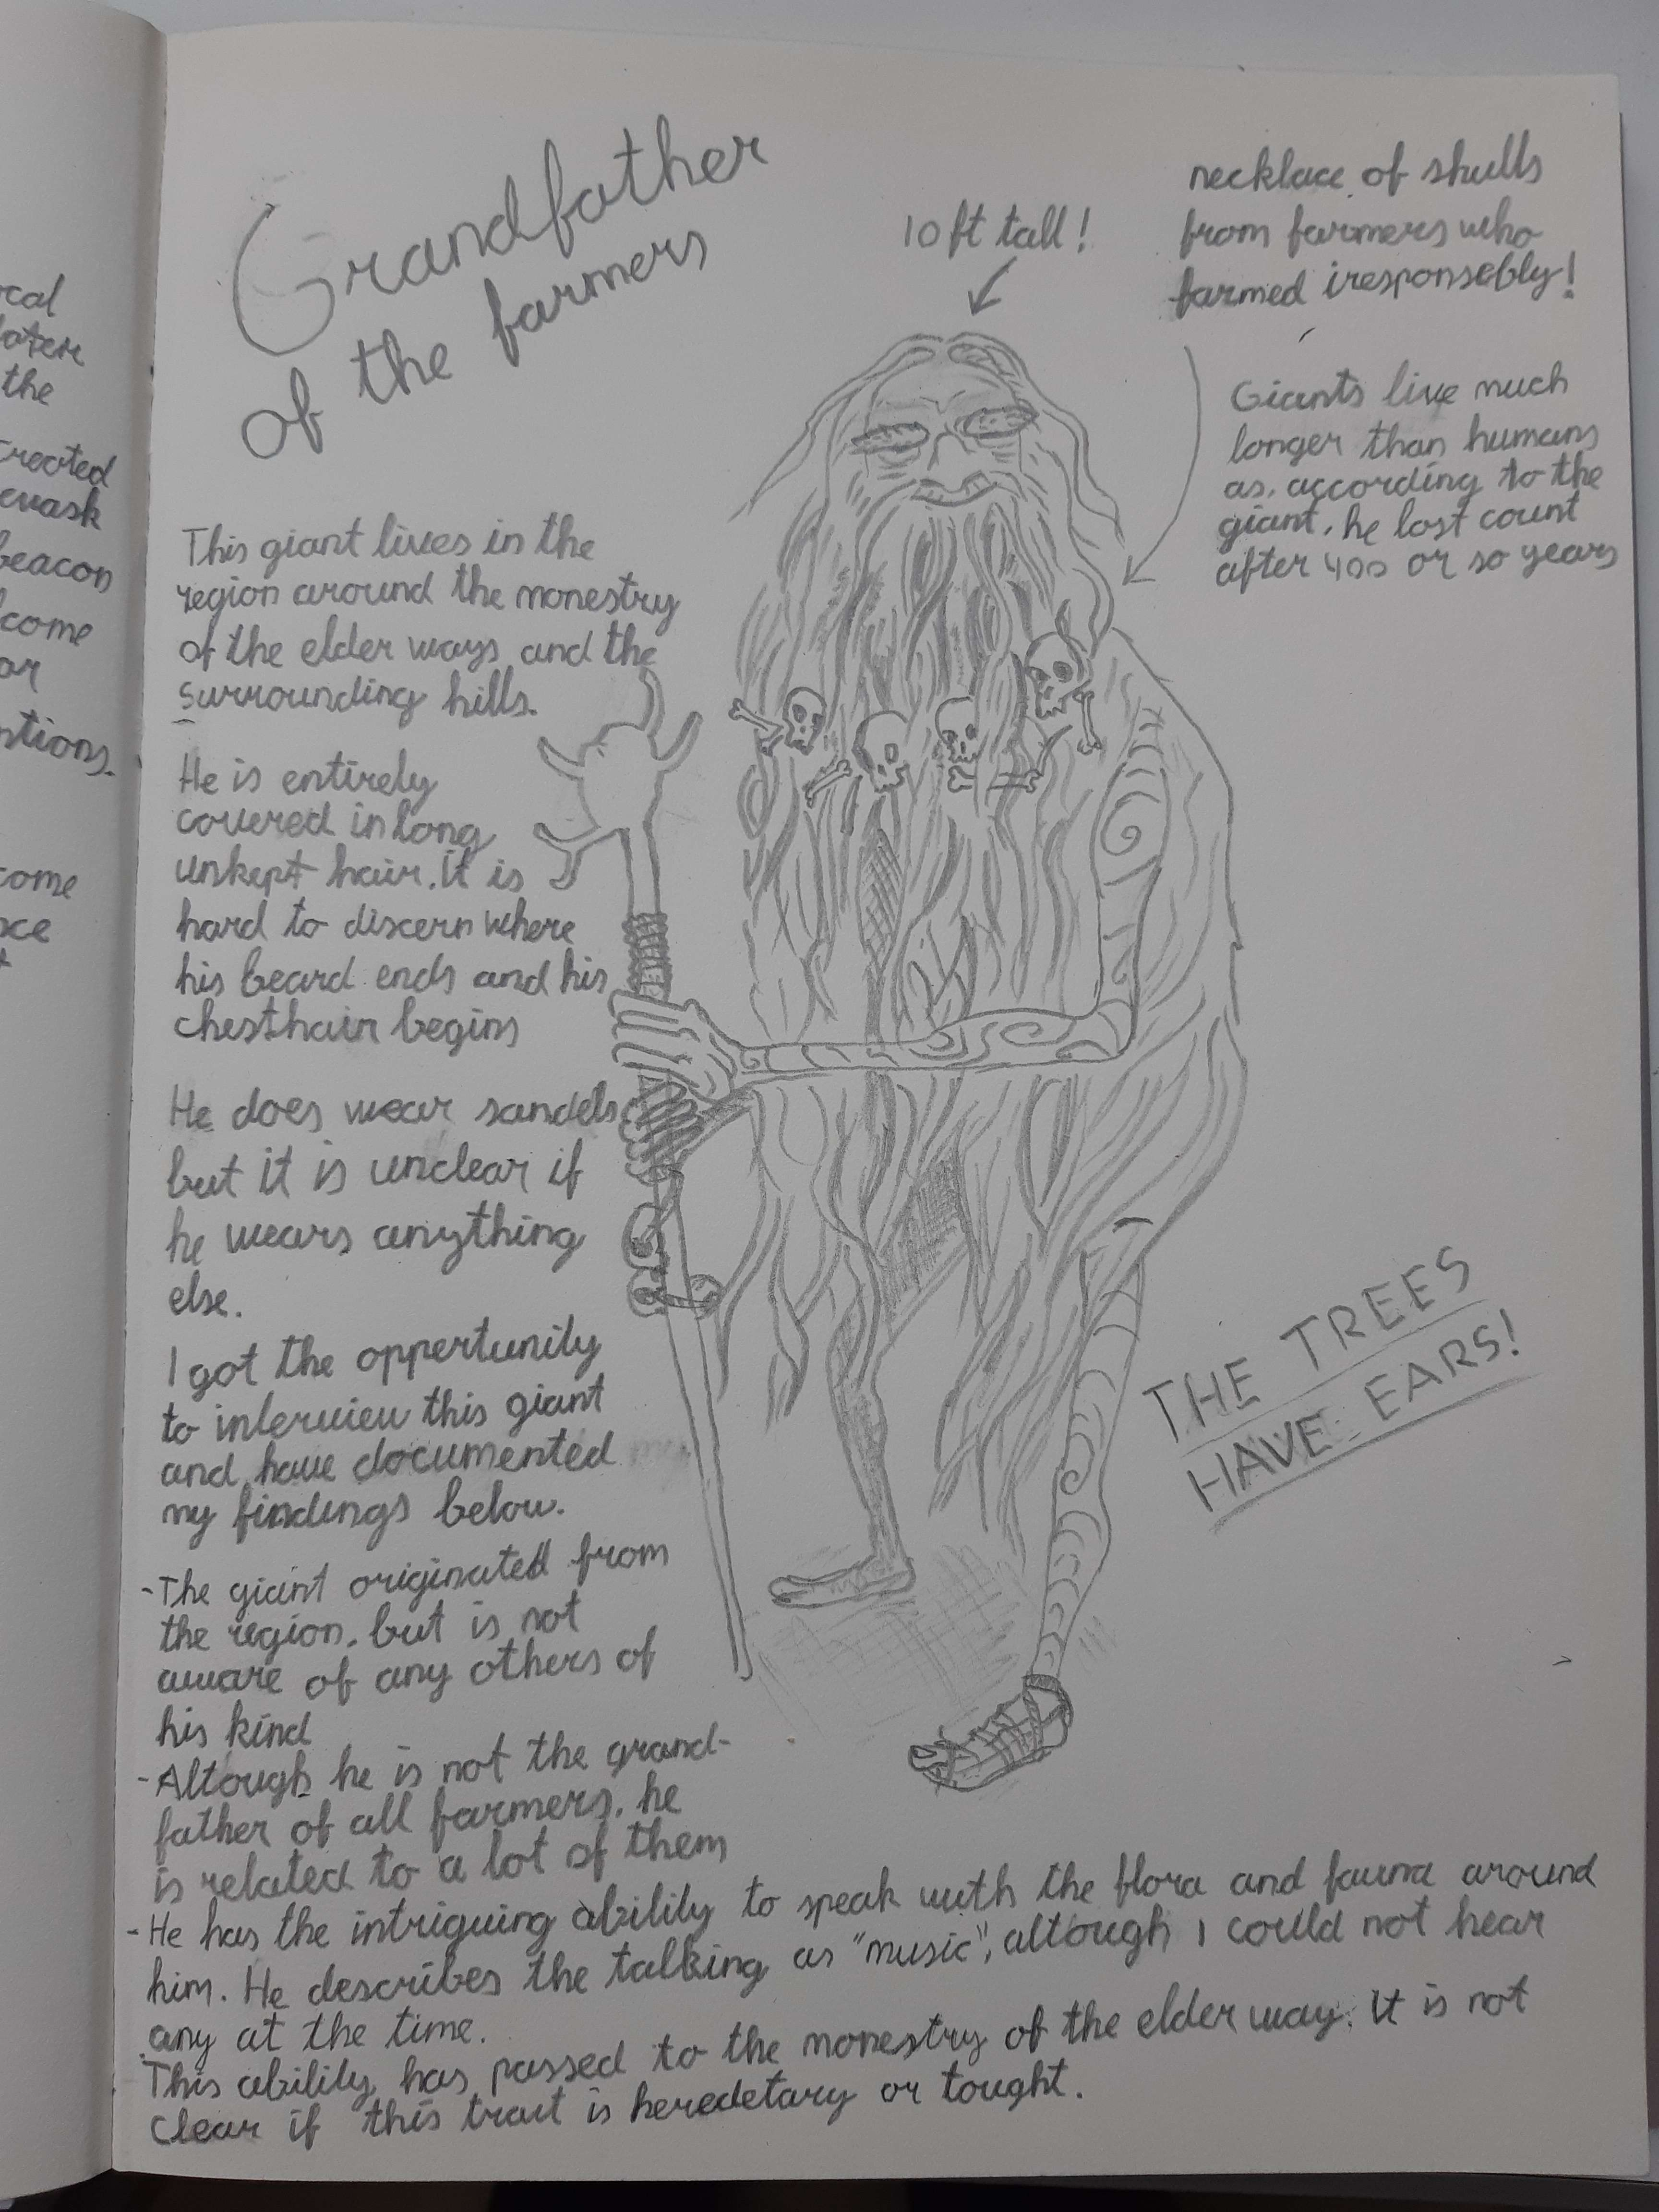 Grandfather
of the farmers
10 ft tall!
necklace of skulls
from farmers who
farmed iresponsebly!
Giants live much
longer than humans
as, according to the
giant, he lost count
after 400 or so years
This giant lives in the
region around the monestry
of the elder ways and the
surrounding hills.
He is entirely
covered in long
unkept hair. it is
hard to discern where
his beard ends and his
chesthair begins
He does wear sandels
but it is unclear if
he wears anything
else.
I got the oppertunity
to interview this giant
and have documented
my findings below.
-The giant originated from
the region, but is not
aware of any others of
his kind
-Altough he is not the grand-
father of all farmers, he
is related to a lot of them
-He has the intriguing ability to speak with the flora and fauna around
him. He describes the talking as "music", altough I could not hear
any at the time.
This ability has passed to the monestry of the elder way. It is not
clear if this trait is heredetary or tought.
THE TREES
HAVE EARS!
ocal
the
created
beacon
come
or
come